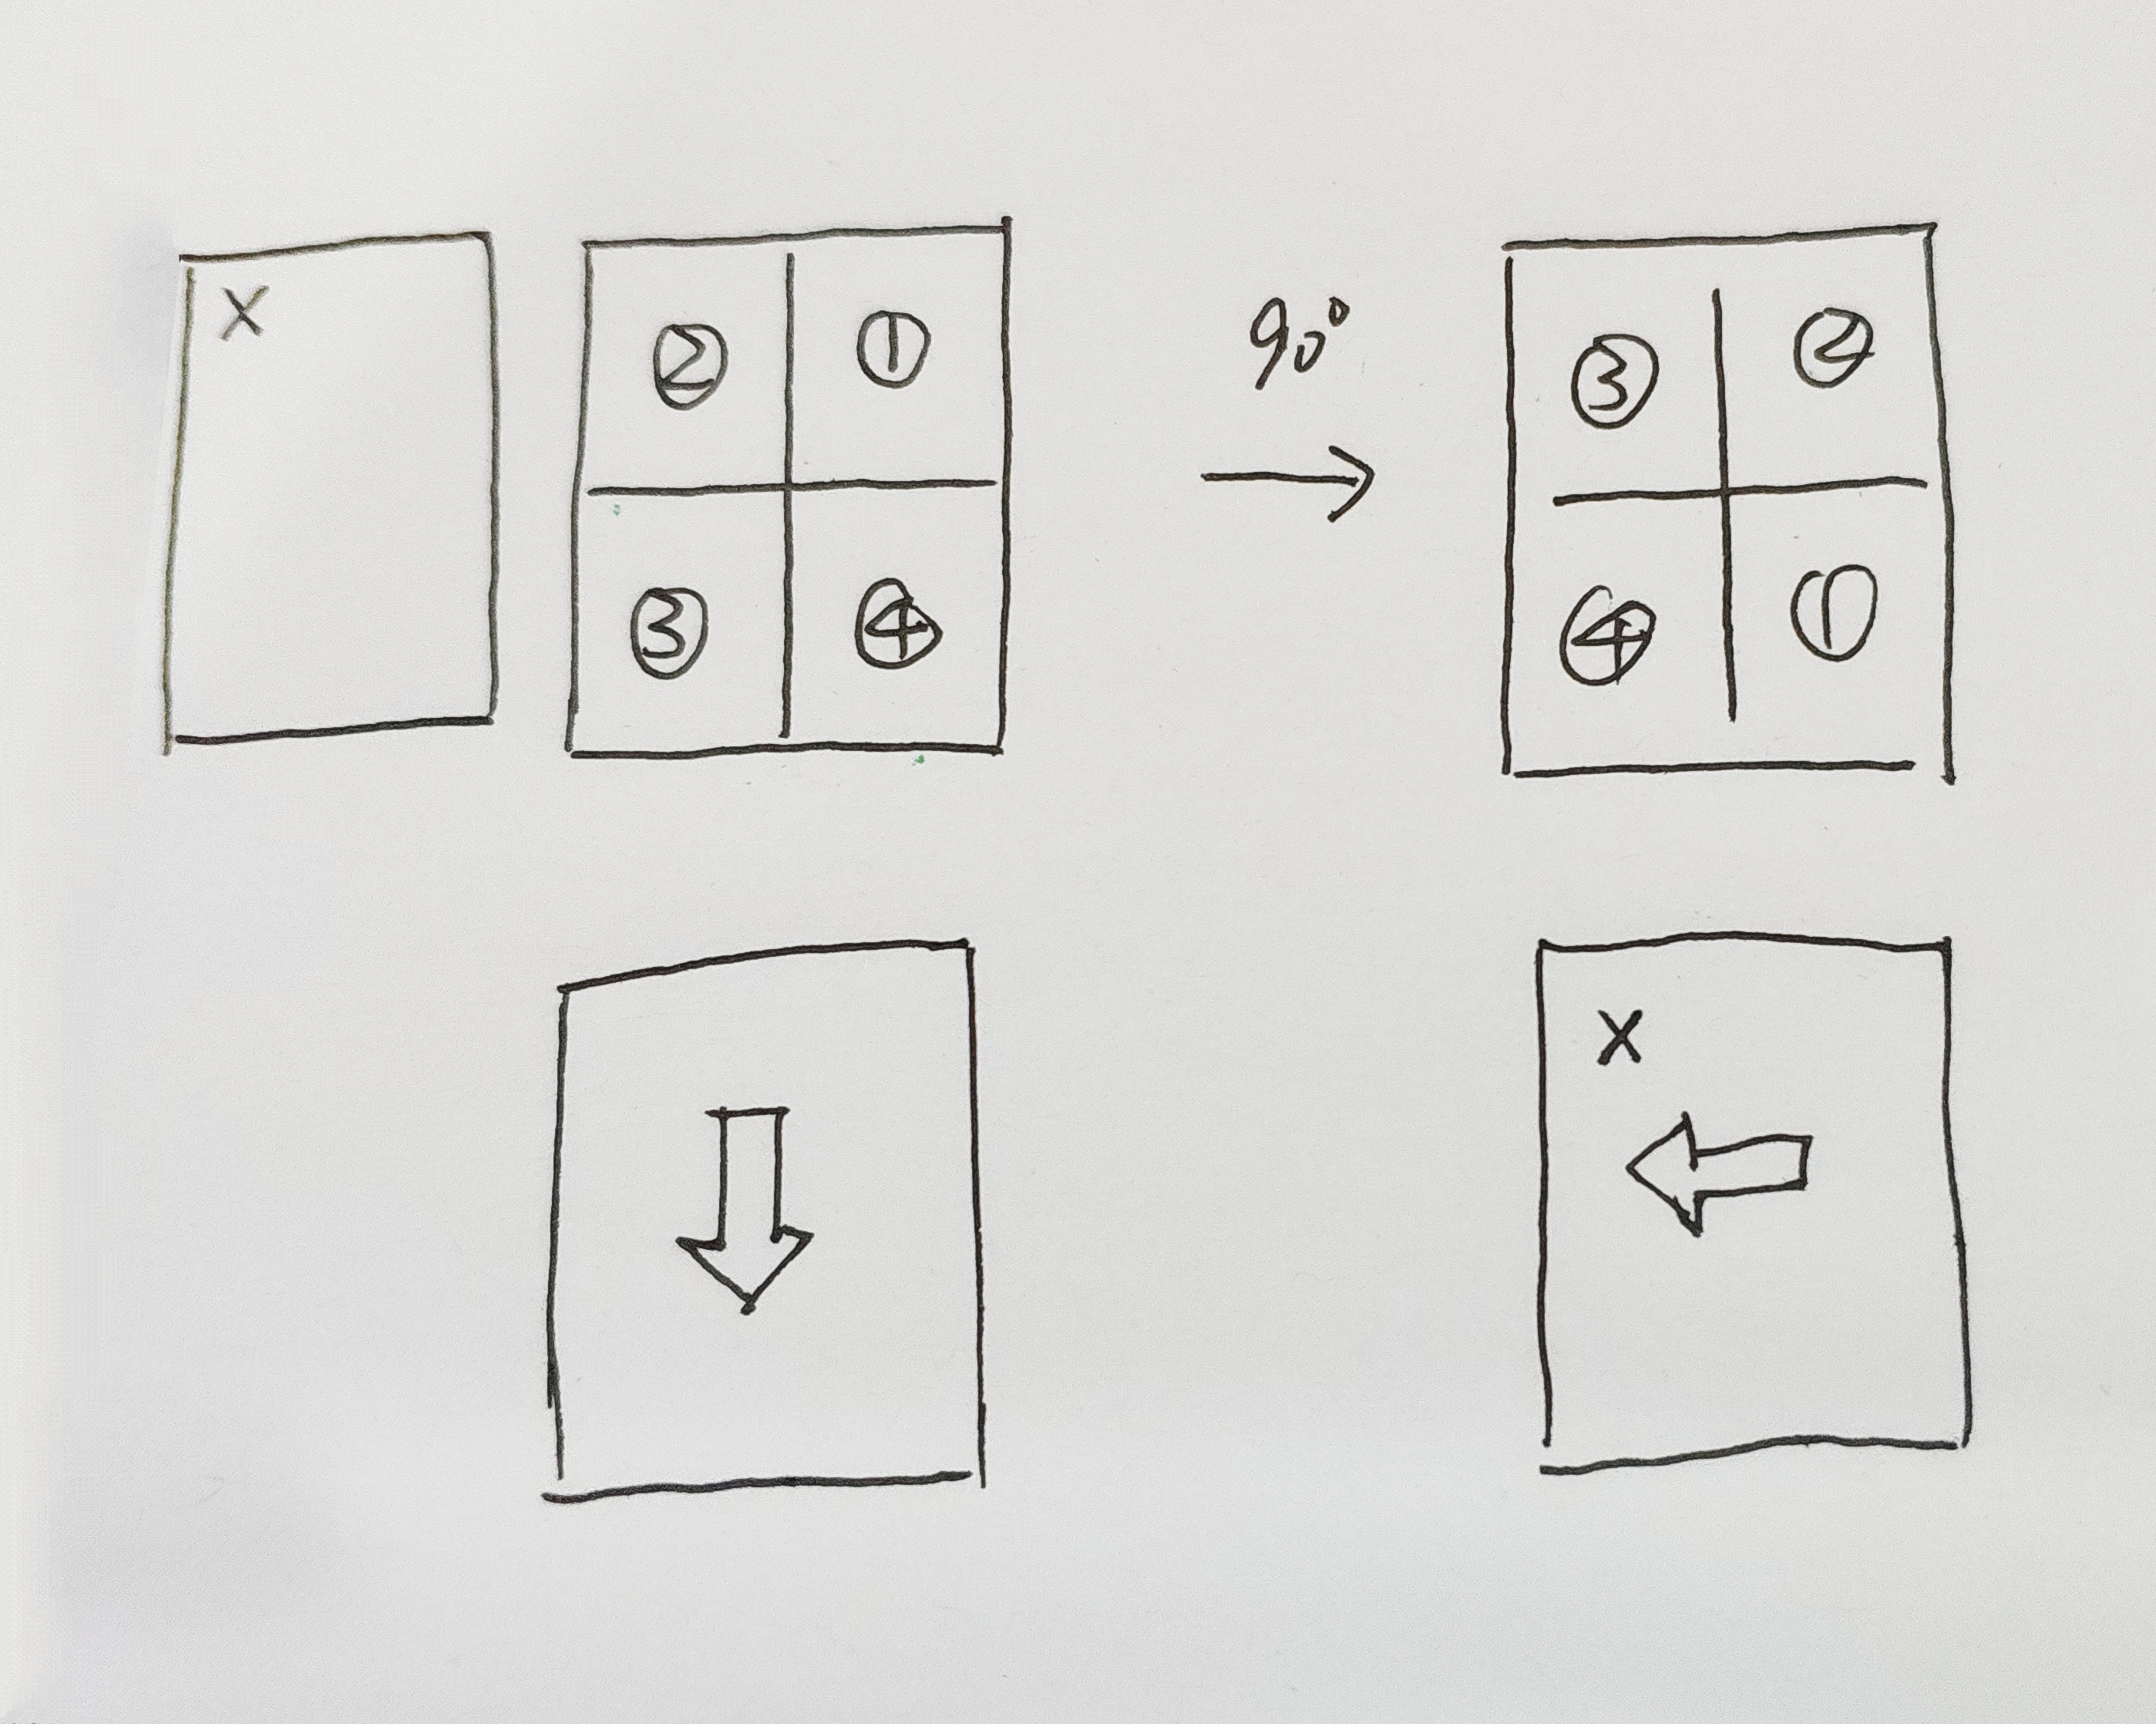 X
② ①
③ ④
90°
③ ②
④ ①
X